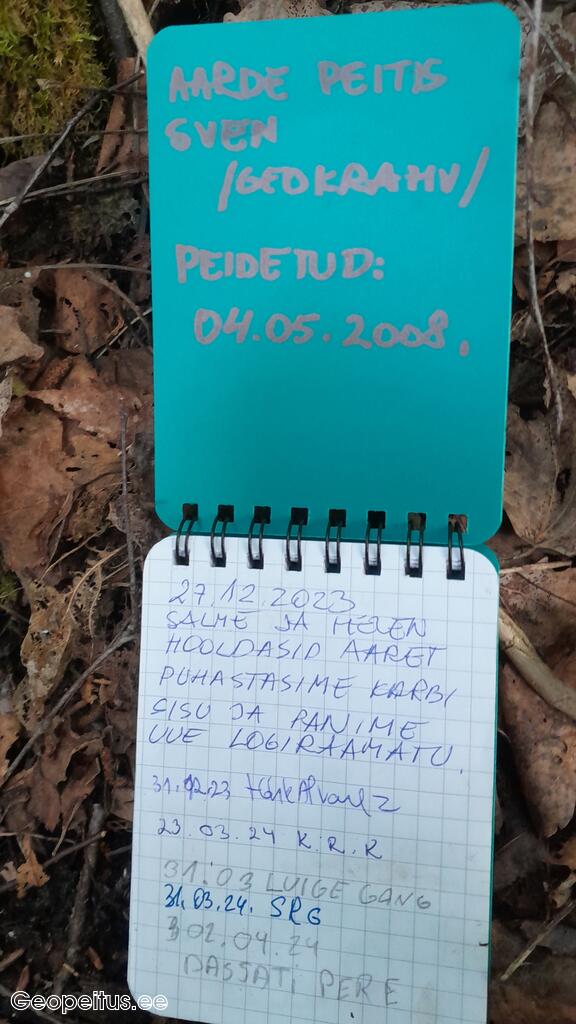 AARDE PEITIS
SVEN
/GEOKRAHV/
PEIDETUD:
04.05.2008.
27.12.2023
SALME JA HELEN
HOOLDASID AARET
PUHASTASIME KARBI
SISU JA PANIME
UUE LOGIRAAMATU.
31.12.23
23.03.24 K.R.R
31.03 LUIGE GANG
31.03.24. SRG
02.04.24
DASSATI PERE
Geopeitus.ee